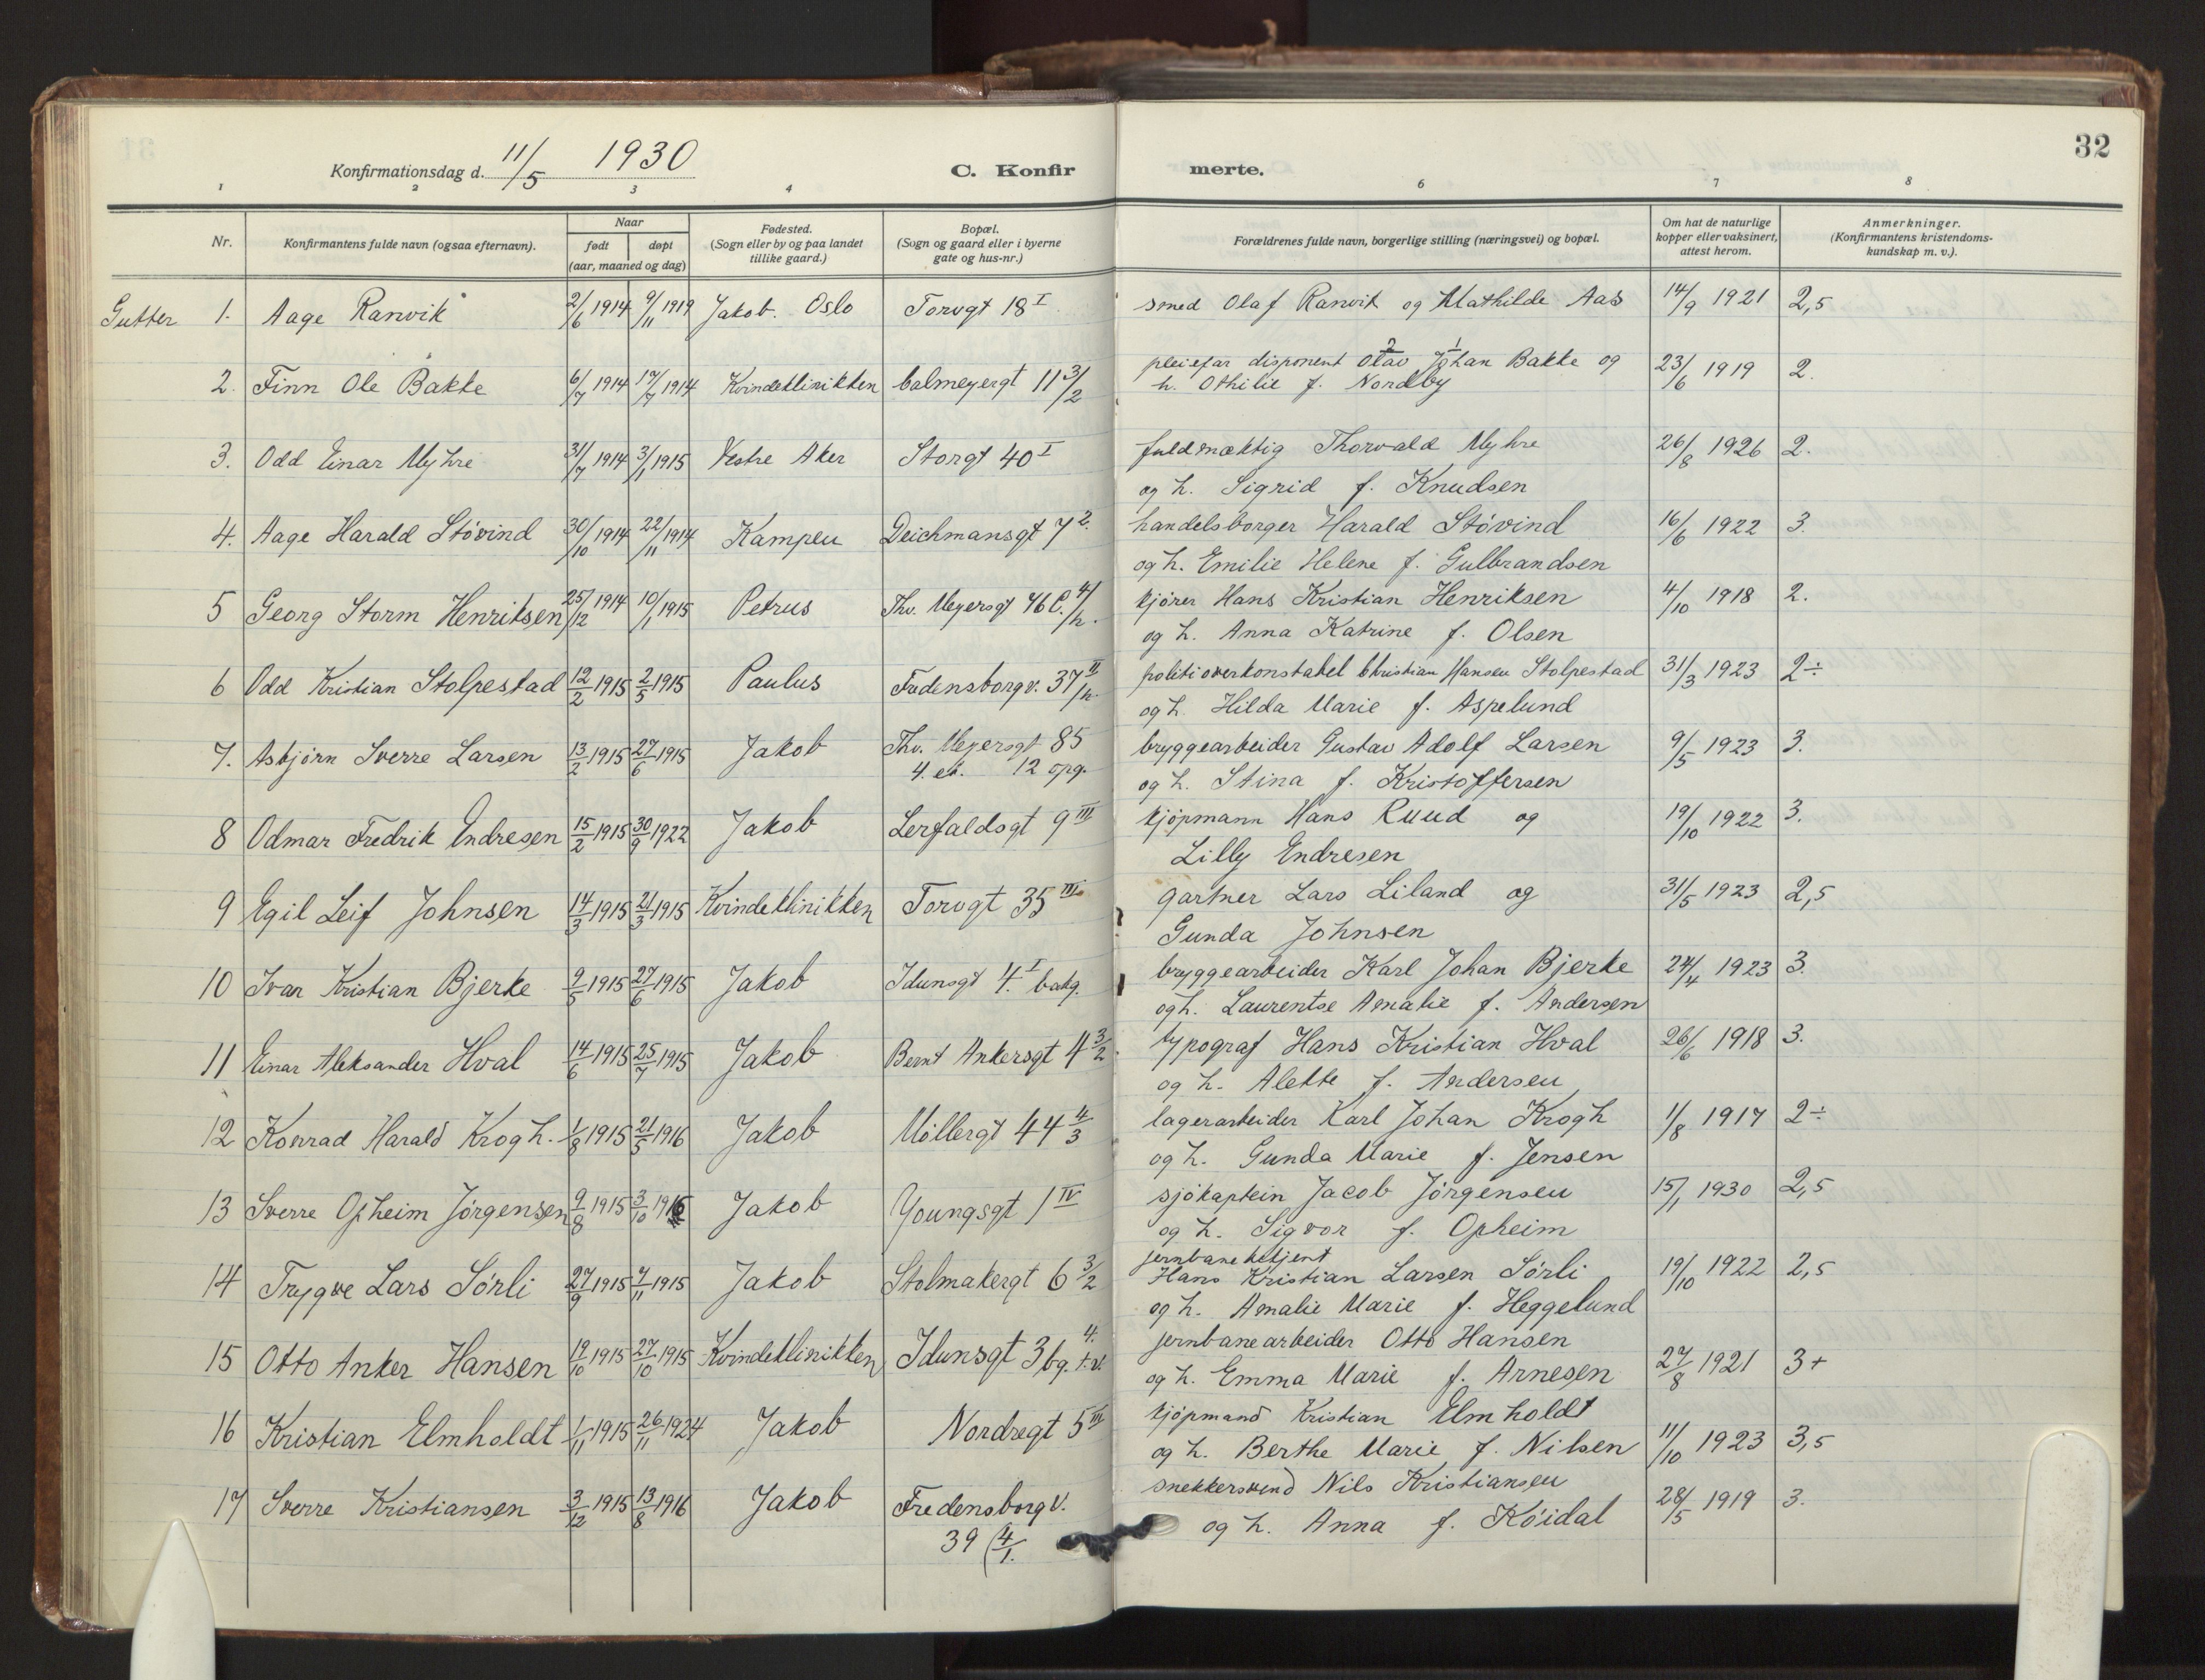 32
Konfirmationsdag d. 11/5 1930
C. Konfir
merte.
1 2 3 4 6 7 8
Nr.
Konfirmantens fulde navn (ogsaa efternavn).
Naar
født døpt
(aar, maaned og dag)
Fødested.
(Sogn eller by og paa landet
tillike gaard.)
Bopæl.
(Sogn og gaard eller i byerne
gate og hus-nr.)
Forældrenes fulde navn, borgerlige stilling (næringsvei) og bopæl.
Om hat de naturlige
kopper eller vaksinert,
attest herom.
Anmerkninger.
(Konfirmantens kristendoms-
kundskap m. v.).
Gutter 1. Aage Ranvik 2/6 1914 9/11 1919 Jakob. Oslo Torvgt 18 I smed Olaf Ranvik og Mathilde Aas 14/9 1921 2,5
2. Finn Ole Bakke 6/7 1914 17/7 1914 Kvindeklinikken Calmeyergt 11 3/2 pleiefar disponent Olav Johan Bakke og 23/6 1919 2.
h. Othilie f. Nordby
3. Odd Einar Myhre 31/7 1914 3/1 1915 Vestre Aker Storgt 40 I fuldmæktig Thorvald Myhre 26/8 1926 2.
og h. Sigrid f. Knudsen
4. Aage Harald Stövind 30/10 1914 22/11 1914 Kampen Deichmansgt 7 2. handelsborger Harald Stövind 16/6 1922 3.
og h. Emilie Helene f. Gulbrandsen
5 Georg Storm Henriksen 25/12 1914 10/1 1915 Petrus Thv. Meyersgt 46 C. 4/h. kjører Hans Kristian Henriksen 4/10 1918 2.
og h. Anna Katrine f. Olsen
6 Odd Kristian Stolpestad 12/2 1915 2/5 1915 Paulus Fredensborgv. 37 II/h. politioverkonstabel Christian Hansen Stolpestad 31/3 1923 2÷
og h. Hilda Marie f. Aspelund
7. Asbjørn Sverre Larsen 13/2 1915 27/6 1915 Jakob Thv. Meyersgt 85 bryggearbeider Gustav Adolf Larsen 9/5 1923 3.
4. et. 12 opg. og h. Stina f. Kristoffersen
8 Odmar Fredrik Endresen 15/2 1915 30/9 1922 Jakob Lerfaldsgt 9 III kjöpmann Hans Ruud og 19/10 1922 3.
Lilly Endresen
9 Egil Leif Johnsen 14/3 1915 21/3 1915 Kvindeklinikken Torvgt 35 III gartner Lars Liland og 31/5 1923 2,5
Gunda Johnsen
10 Ivar Kristian Bjerke 9/5 1915 27/6 1915 Jakob Idunsgt 4. I bakg. bryggearbeider Karl Johan Bjerke 24/4 1923 3.
og h. Laurentse Amalie f. Andersen
11 Einar Aleksander Hval 14/6 1915 25/7 1915 Jakob Bernt Ankersgt 4 3/2 typograf Hans Kristian Hval 26/6 1918 3.
og h. Alette f. Andersen
12 Konrad Harald Krogh. 1/8 1915 21/5 1916 Jakob Möllergt 44 4/3 lagerarbeider Karl Johan Krogh 1/8 1917 2÷
og h. Gunda Marie f. Jensen
13 Sverre Opheim Jörgensen 9/8 1915 3/10 1915 Jakob Youngsgt 1 IV sjökaptein Jacob Jörgensen 15/1 1930 2,5
og h. Sigvor f. Opheim
14 Trygve Lars Sörli 27/9 1915 7/11 1915 Jakob Stolmakergt 6 3/2 jernbanebetjent
Hans Kristian Larsen Sörli 19/10 1922 2,5
og h. Amalie Marie f. Heggelund
15 Otto Anker Hansen 19/10 1915 27/10 1915 Kvindeklinikken Idunsgt 3 bg. 4. t.v. jernbanearbeider Otto Hansen
og h. Emma Marie f. Arnesen 27/8 1921 3+
16 Kristian Elmholdt 1/11 1915 26/11 1924 Jakob Nordregt 5 III kjöpmand Kristian Elmholdt
og h. Berthe Marie f. Nilsen 11/10 1923 3,5
17 Sverre Kristiansen 3/12 1915 13/8 1916 Jakob Fredensborgv. snekkersvend Nils Kristiansen
39 (4/1. og h. Anna f. Köidal 28/5 1919 3.